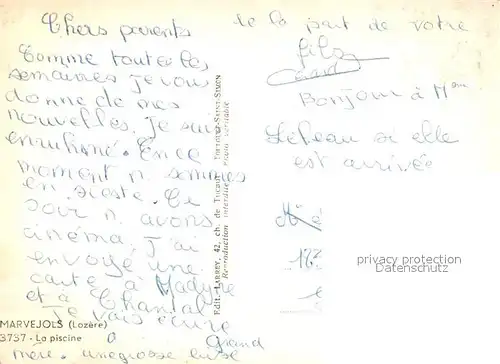 Chers parents
Comme toutes les
semaines je vous
donne de mes
nouvelles. Je suis
enrhumé. En ce
moment n. sommes
en sieste. Ce
soir n. avons
cinéma. J'ai
envoyé une
carte à
et à Chantal
Je vais écrire
à Grand
mère. une grosse bise
de la part de votre
fils
Bonjour à Mme
si elle
est arrivée
MARVEJOLS (Lozère)
3737 - La piscine
Edit. LARREY, 42, ch. de Tucaut,
Reproduction interdite
privacy protection
Datenschutz